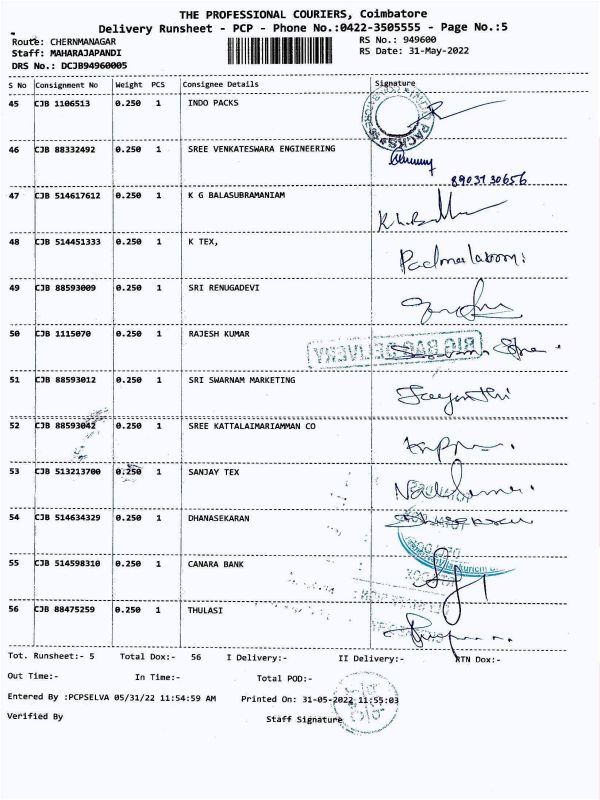 THE PROFESSIONAL COURIERS, Coimbatore
Delivery Runsheet - PCP - Phone No.:0422-3505555 - Page No.:5
Route: CHERNMANAGAR
RS No.: 949600
Staff: MAHARAJAPANDI
RS Date: 31-May-2022
DRS No.: DCJB94960005
S No Consignment No Weight PCS Consignee Details Signature
45 CJB 1106513 0.250 1 INDO PACKS
46 CJB 88332492 0.250 1 SREE VENKATESWARA ENGINEERING
8903730656
47 CJB 514617612 0.250 1 K G BALASUBRAMANIAM
48 CJB 514451333 0.250 1 K TEX,
Padmalaxmi
49 CJB 88593009 0.250 1 SRI RENUGADEVI
50 CJB 1115070 0.250 1 RAJESH KUMAR
BIG BAG DELIVERY
51 CJB 88593012 0.250 1 SRI SWARNAM MARKETING
Jayanthi
52 CJB 88593042 0.250 1 SREE KATTALAIMARIAMMAN CO
53 CJB 513213700 0.250 1 SANJAY TEX
54 CJB 514634329 0.250 1 DHANASEKARAN
55 CJB 514598310 0.250 1 CANARA BANK
56 CJB 88475259 0.250 1 THULASI
Tot. Runsheet:- 5 Total Dox:- 56 I Delivery:- II Delivery:- RTN Dox:-
Out Time:- In Time:- Total POD:-
Entered By :PCPSELVA 05/31/22 11:54:59 AM Printed On: 31-05-2022 11:55:03
Verified By Staff Signature